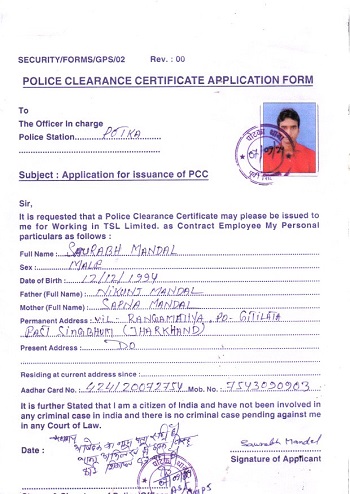 SECURITY/FORMS/GPS/02 Rev. : 00
POLICE CLEARANCE CERTIFICATE APPLICATION FORM
To
The Officer In charge
Police Station POTKA
Subject : Application for issuance of PCC
Sir,
It is requested that a Police Clearance Certificate may please be issued to
me for Working in TSL Limited. as Contract Employee My Personal
particulars as follows :
Full Name : SAURABH MANDAL
Sex : MALE
Date of Birth : 12/12/1994
Father (Full Name) : NIKUNJ MANDAL
Mother (Full Name) : SAPNA MANDAL
Permanent Address : VIL- RANGAMATIYA, PO- GITILATA
EAST SINGBHUM (JHARKHAND)
Present Address : DO
Residing at current address since :
Aadhar Card No. : Mob. No. :
It is further Stated that I am a citizen of India and have not been involved in
any criminal case in India and there is no criminal case pending against me
in any Court of Law.
Date : Saurabh Mandal
Signature of Applicant